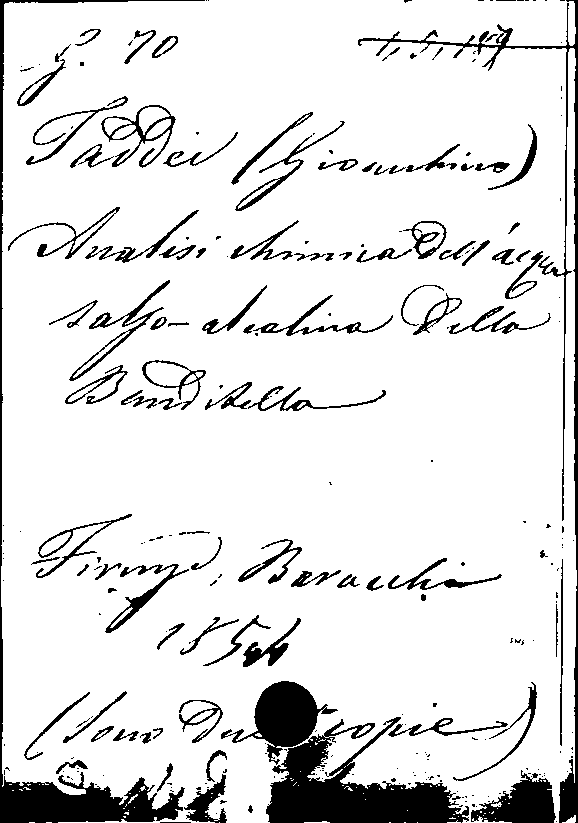 G. 70 1, 5, 189
Taddei (Gioacchino)
Analisi chimica dell'acqua
salso-alcalina della
Banditella
Firenze, Baracchi
185
(Sono due copie)